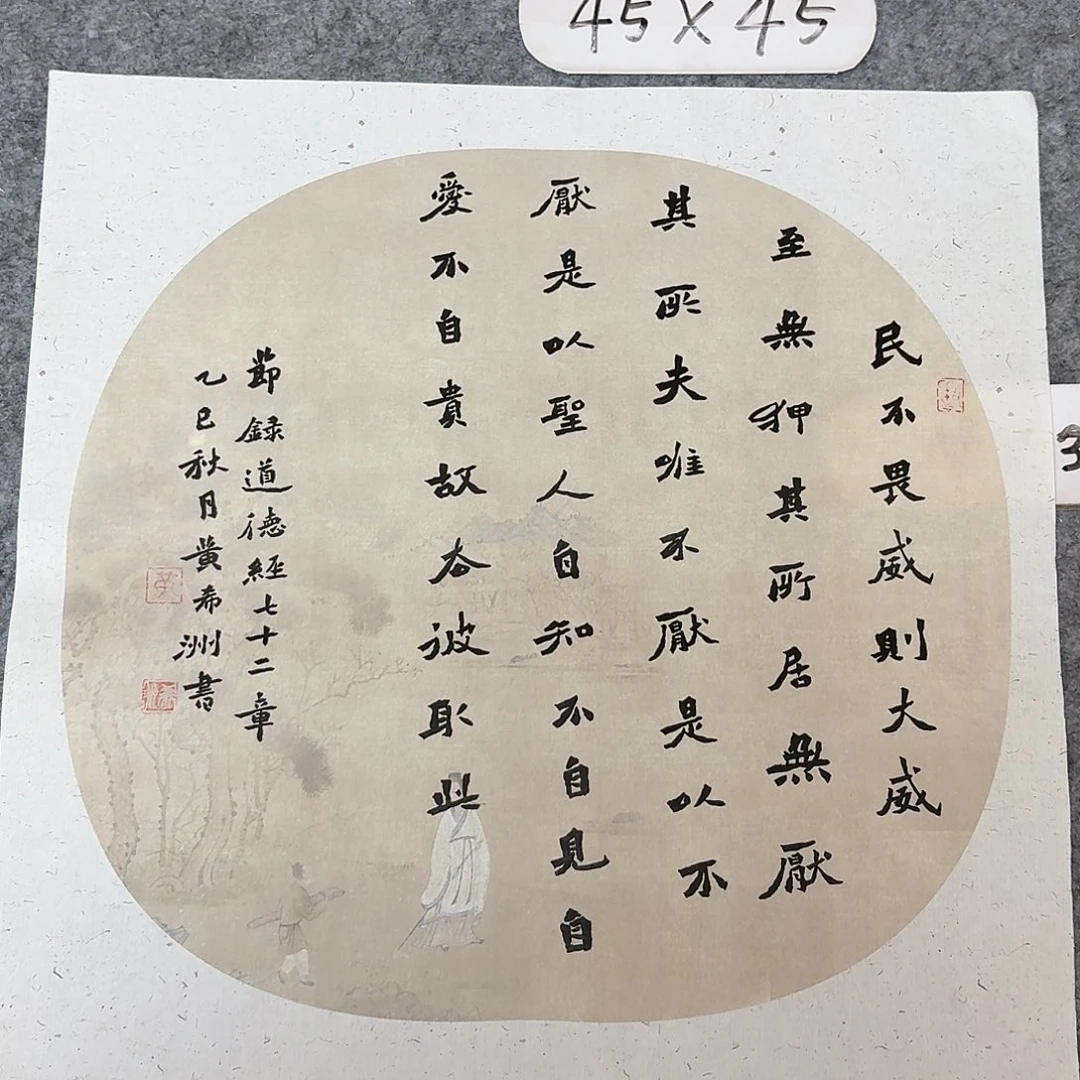 45×45
民不畏威則大威
至無狎其所居無厭
其所夫唯不厭是以不
厭是以聖人自知不自見自
愛不自貴故去彼取此
節錄道德經七十二章
乙巳秋月黃希洲書